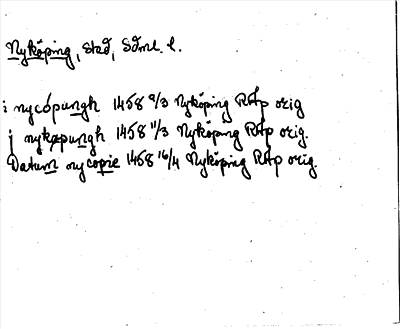 Nyköping, stad, Södml. l.
i nycópungh 1458 9/3 Nyköping RAp orig
j nykøpungh 1458 11/3 Nyköping RAp orig.
Datum nycopie 1458 16/4 Nyköping RAp orig.